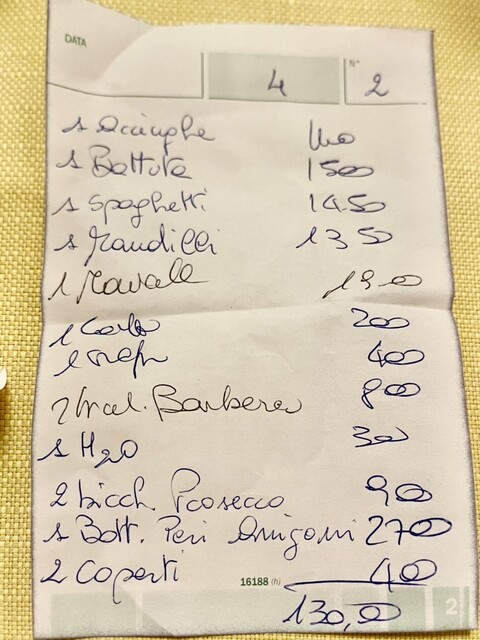 DATA
N°
4 2
1 Acciughe 1100
1 Battuta 1500
1 Spaghetti 1450
1 Mandilli 1350
1 1900
1 200
1 400
2 Barbera 800
1 H2O 300
2 bicch. Prosecco 900
1 Bott. Peri 2700
2 Coperti 400
16188 (h)
130,00
2